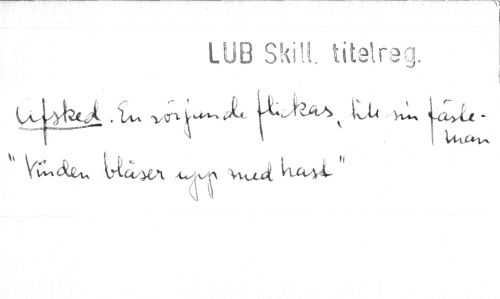 LUB Skill. titelreg.
Afsked. En sörjande flickas, till sin fäste-
man
"Vinden blåser upp med hast"